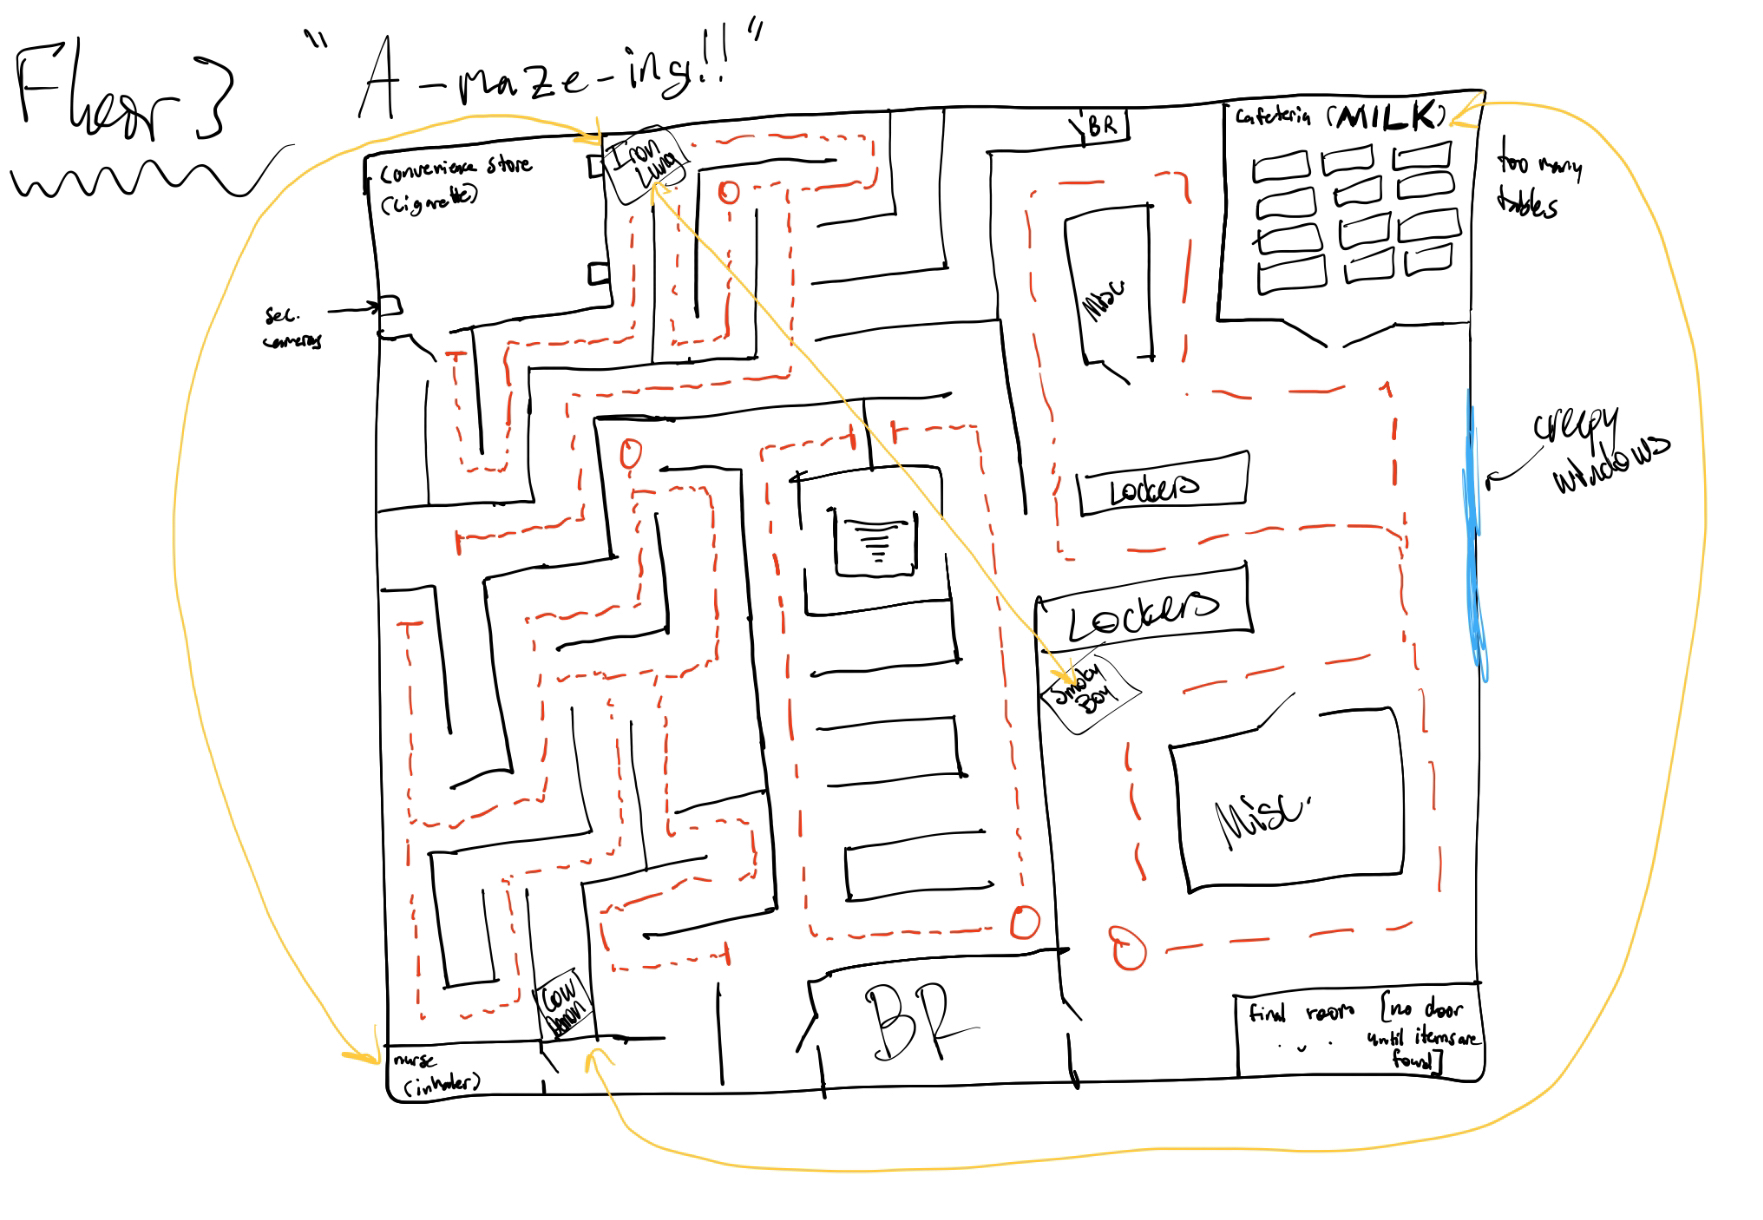 Floor 3
"A-maze-ing!!"
Convenience store
(cigarette)
Iron
Lung
BR
Cafeteria (MILK)
too many
tables
sec.
cameras
Misc
creepy
windows
Lockers
Lockers
Smoky
Boy
Misc.
Cow
Demon
BR
final room [no door
until items are
found]
nurse
(inhaler)